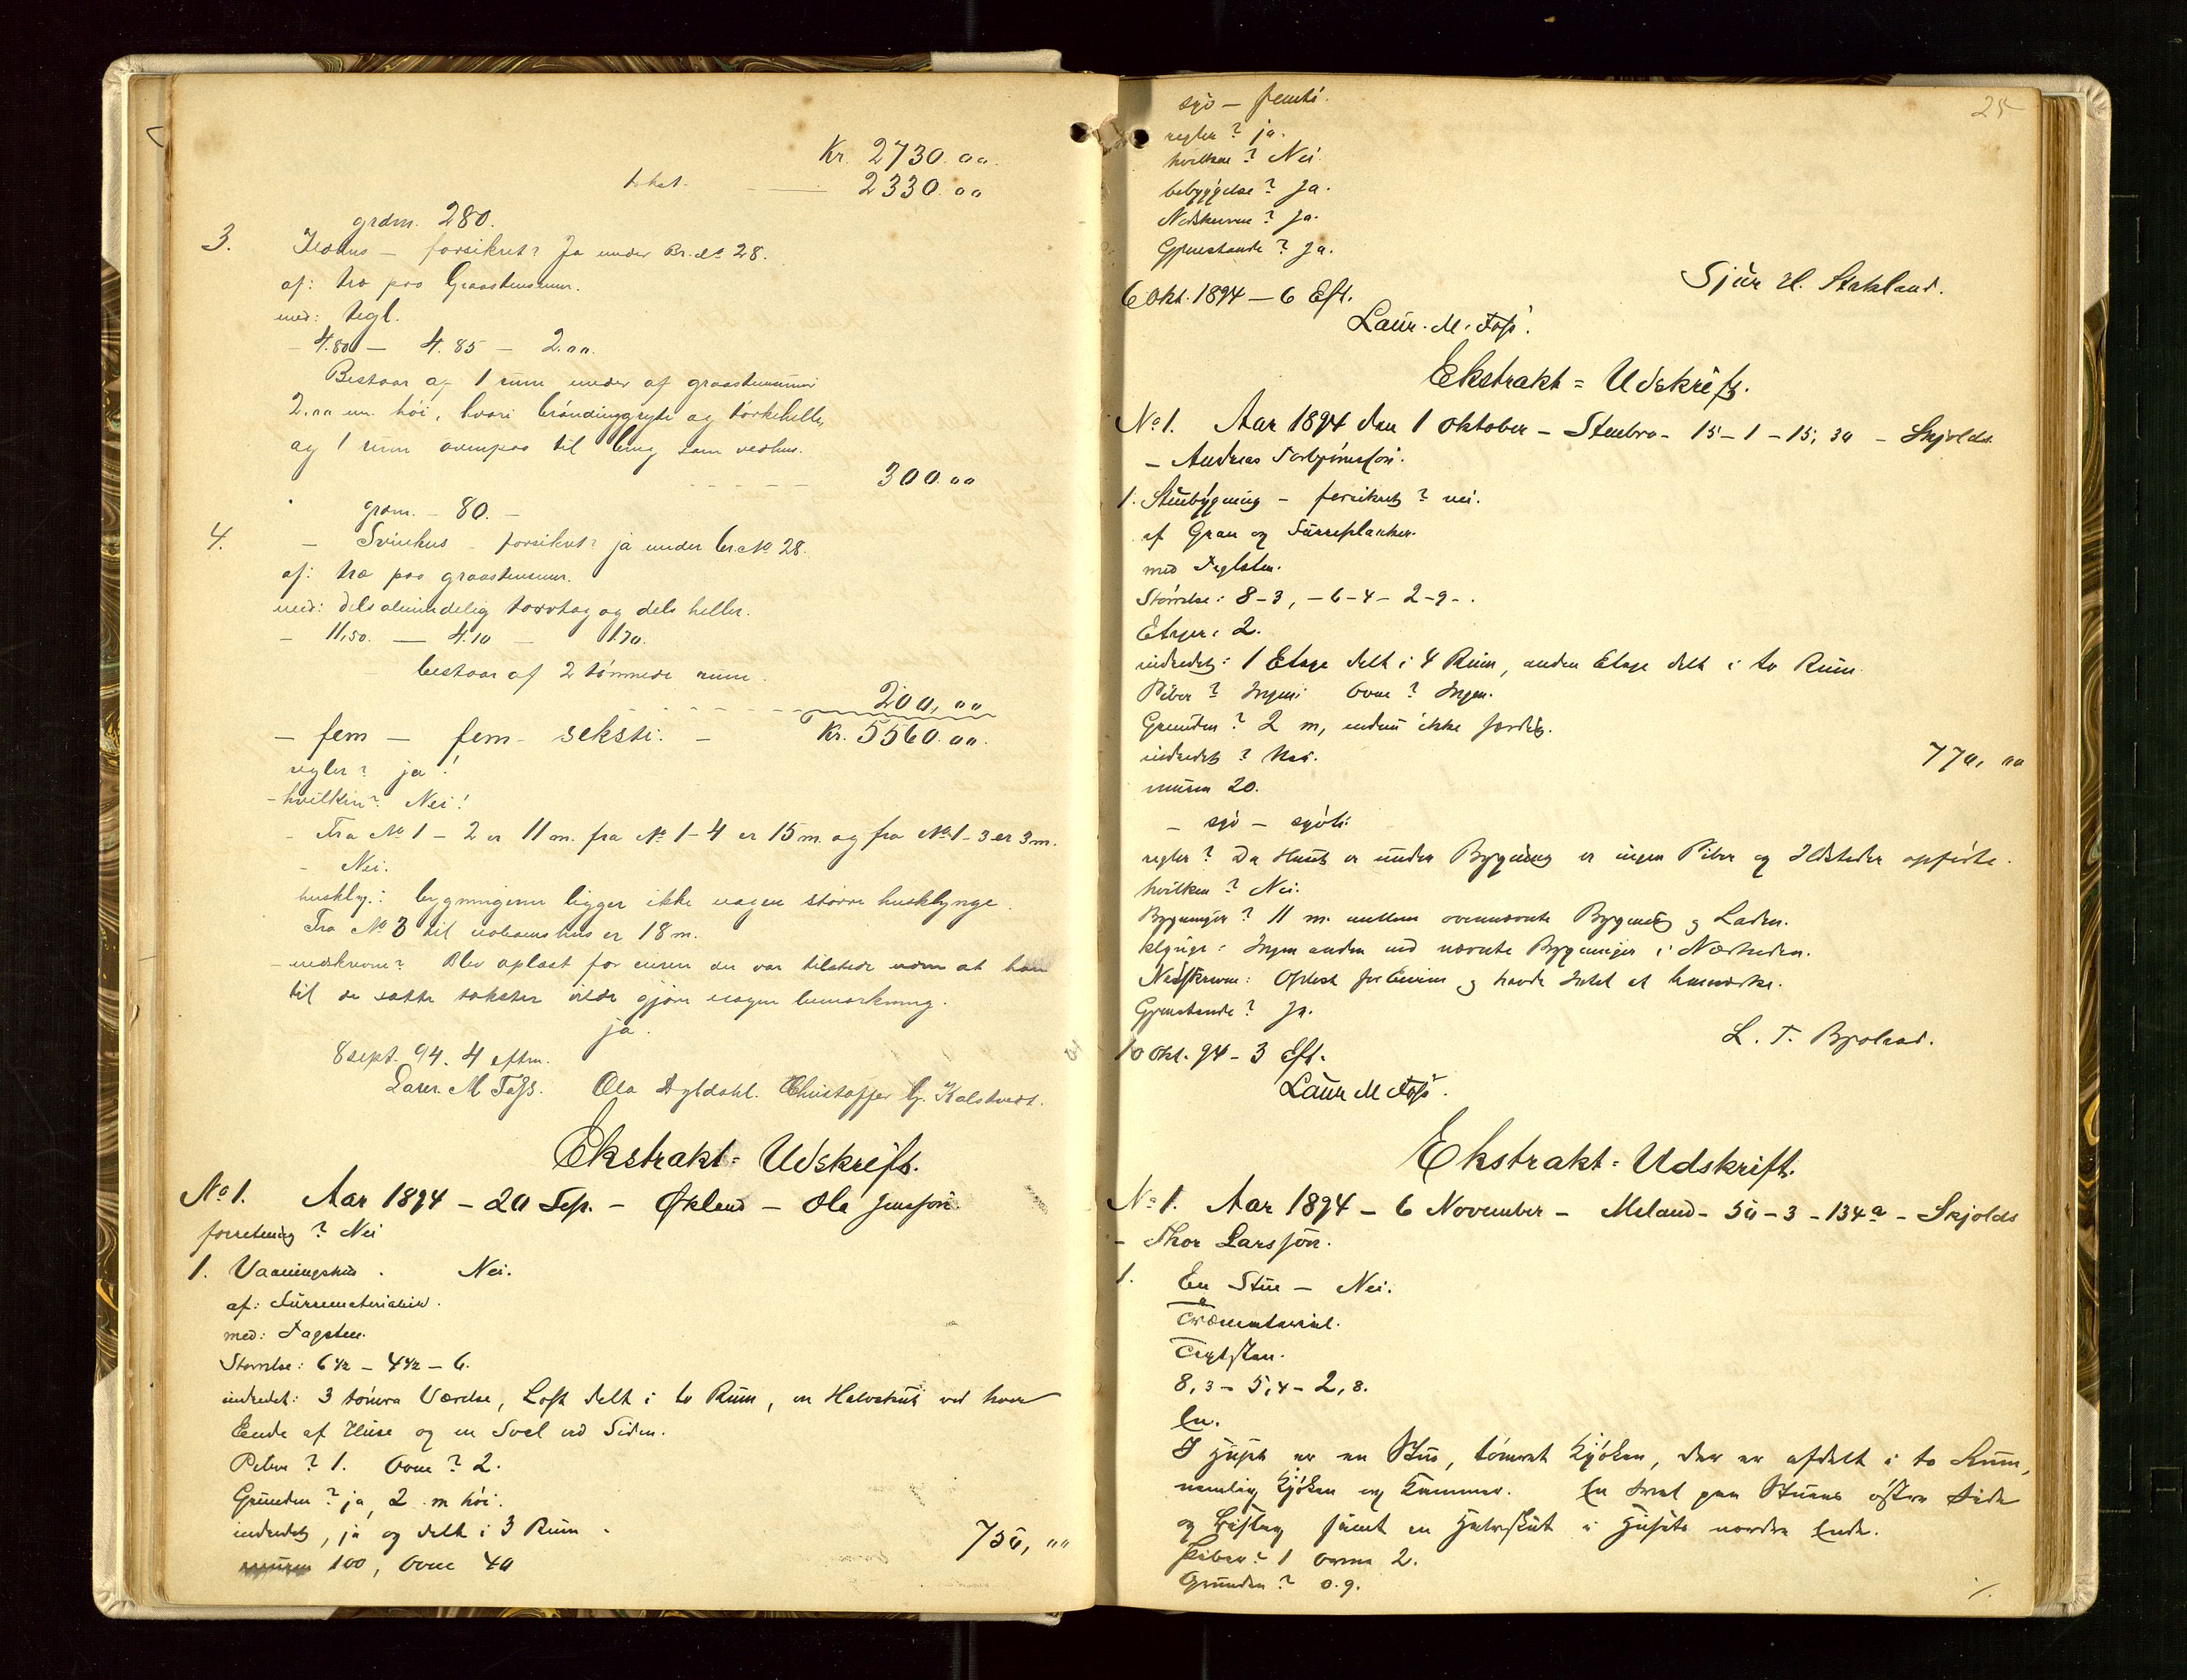 Kr. 2730.00.
takst. — 2330.00
grdm. 280.
3. Ildhus — forsikret? Ja under Br. No 28.
af: træ paa Graastensmur.
med: tegl.
- 4.80 — 4.85 — 2.00.
Bestaar af 1 rum under af graastensmur
2.00 m. høi, hvori bryndinggryte og tørkehelle,
og 1 rum ovenpaa til brug som vedhus.
300.00
grdm. - 80. -
4. — Svinhus - forsikret? ja under br. No 28.
af: træ paa graastensmur.
med: dels almindelig torvtag og dels heller.
- 11,50. — 4.10 — 1.70.
bestaar af 2 tømrede rum.
200,00
- fem — fem - seksti. — Kr. 5560.00.
regler? ja!
- hvilken? Nei!
- Fra No 1 - 2 er 11 m. fra No 1-4 er 15 m. og fra No 1-3 er 3 m.
- Nei.
husklyn.: bygningerne ligger ikke i nogen større husklynge.
Fra No 3 til naboens hus er 18 m.
- nedskrevne? Blev oplæst for eieren der var tilstede uden at han
til de satte takster vilde gjøre nogen bemærkning.
ja.
8 sept. 94. 4 eftm.
Laur. M Foss. Ola Dyldahl. Christoffer G. Kalstveit.
Ekstrakt = Udskrift.
No 1. Aar 1894 - 20 Sep. - Økland - Ole Jensson.
forretning? Nei
1. Vaaningshus. Nei.
af: Furrematerialier.
med: Tagsten.
Størrelse: 6 1/2 - 4 1/2 - 6.
indredet: 3 tømra Værelse, Loft delt i to Rum, en Halvskut ved hver
Ende af Huse og en Sval ved Siden.
Piber? 1. Ovne? 2.
Grunden? ja, 2 m høi.
indredet, ja og delt i 3 Rum.
750,00
muren 100, Ovne 40
25
syv - femti.
regler? ja.
hvilken? Nei.
bebyggelse? Ja.
Nedskrevne? Ja.
Gjenstande? Ja.
Sjur H. Stakland.
6 Okt. 1894 - 6 Eft.
Laur. M. Foss.
Ekstrakt = Udskrift.
No 1. Aar 1894 den 1 Oktober - Stenbro - 15 - 1 - 15,30 - Skjolds
- Andreas Torbjørnsson.
1. Stuebygning - forsikret? nei.
af Gran og Furreplanker.
med Teglsten.
Størrelse: 8-3, - 6-4 - 2-9 -.
Etager: 2.
indredet: 1 Etage delt i 4 Rum, anden Etage delt i to Rum.
Piber? Ingen. Ovne? Ingen.
Grunden? 2 m, endnu ikke færdig.
indredet? Nei.
770,00
muren 20.
- syv - sytti
regler? Da Huset er under Bygning er ingen Piber og Ildsteder opførte.
hvilken? Nei.
Bygninger? 11 m. mellem ovennævnte Bygning og Laden.
klynge: Ingen anden end nævnte Bygninger i Nærheden.
Nedskrevne: Oplæst for Eieren og havde Intet at bemærke.
Gjenstande? Ja.
L. T. Bjoland.
10 Okt. 94 - 3 Eft.
Laur M Foss.
Ekstrakt = Udskrift.
No 1. Aar 1894 - 6 November - Meland - 50 - 3 - 134a - Skjolds
- Thor Larsson.
1. En Stue — Nei.
Træmaterial.
Teglsten.
8,3 - 5,4 - 2,8.
En.
I Huset er en Stue, tømret Kjøken, der er afdelt i to Rum,
nemlig Kjøken og Kammer. En Sval paa Stuens østre Side
og samt en Halvskut i Husets nordre Ende.
Piber? 1 Ovne 2.
Grunden? 0.9.